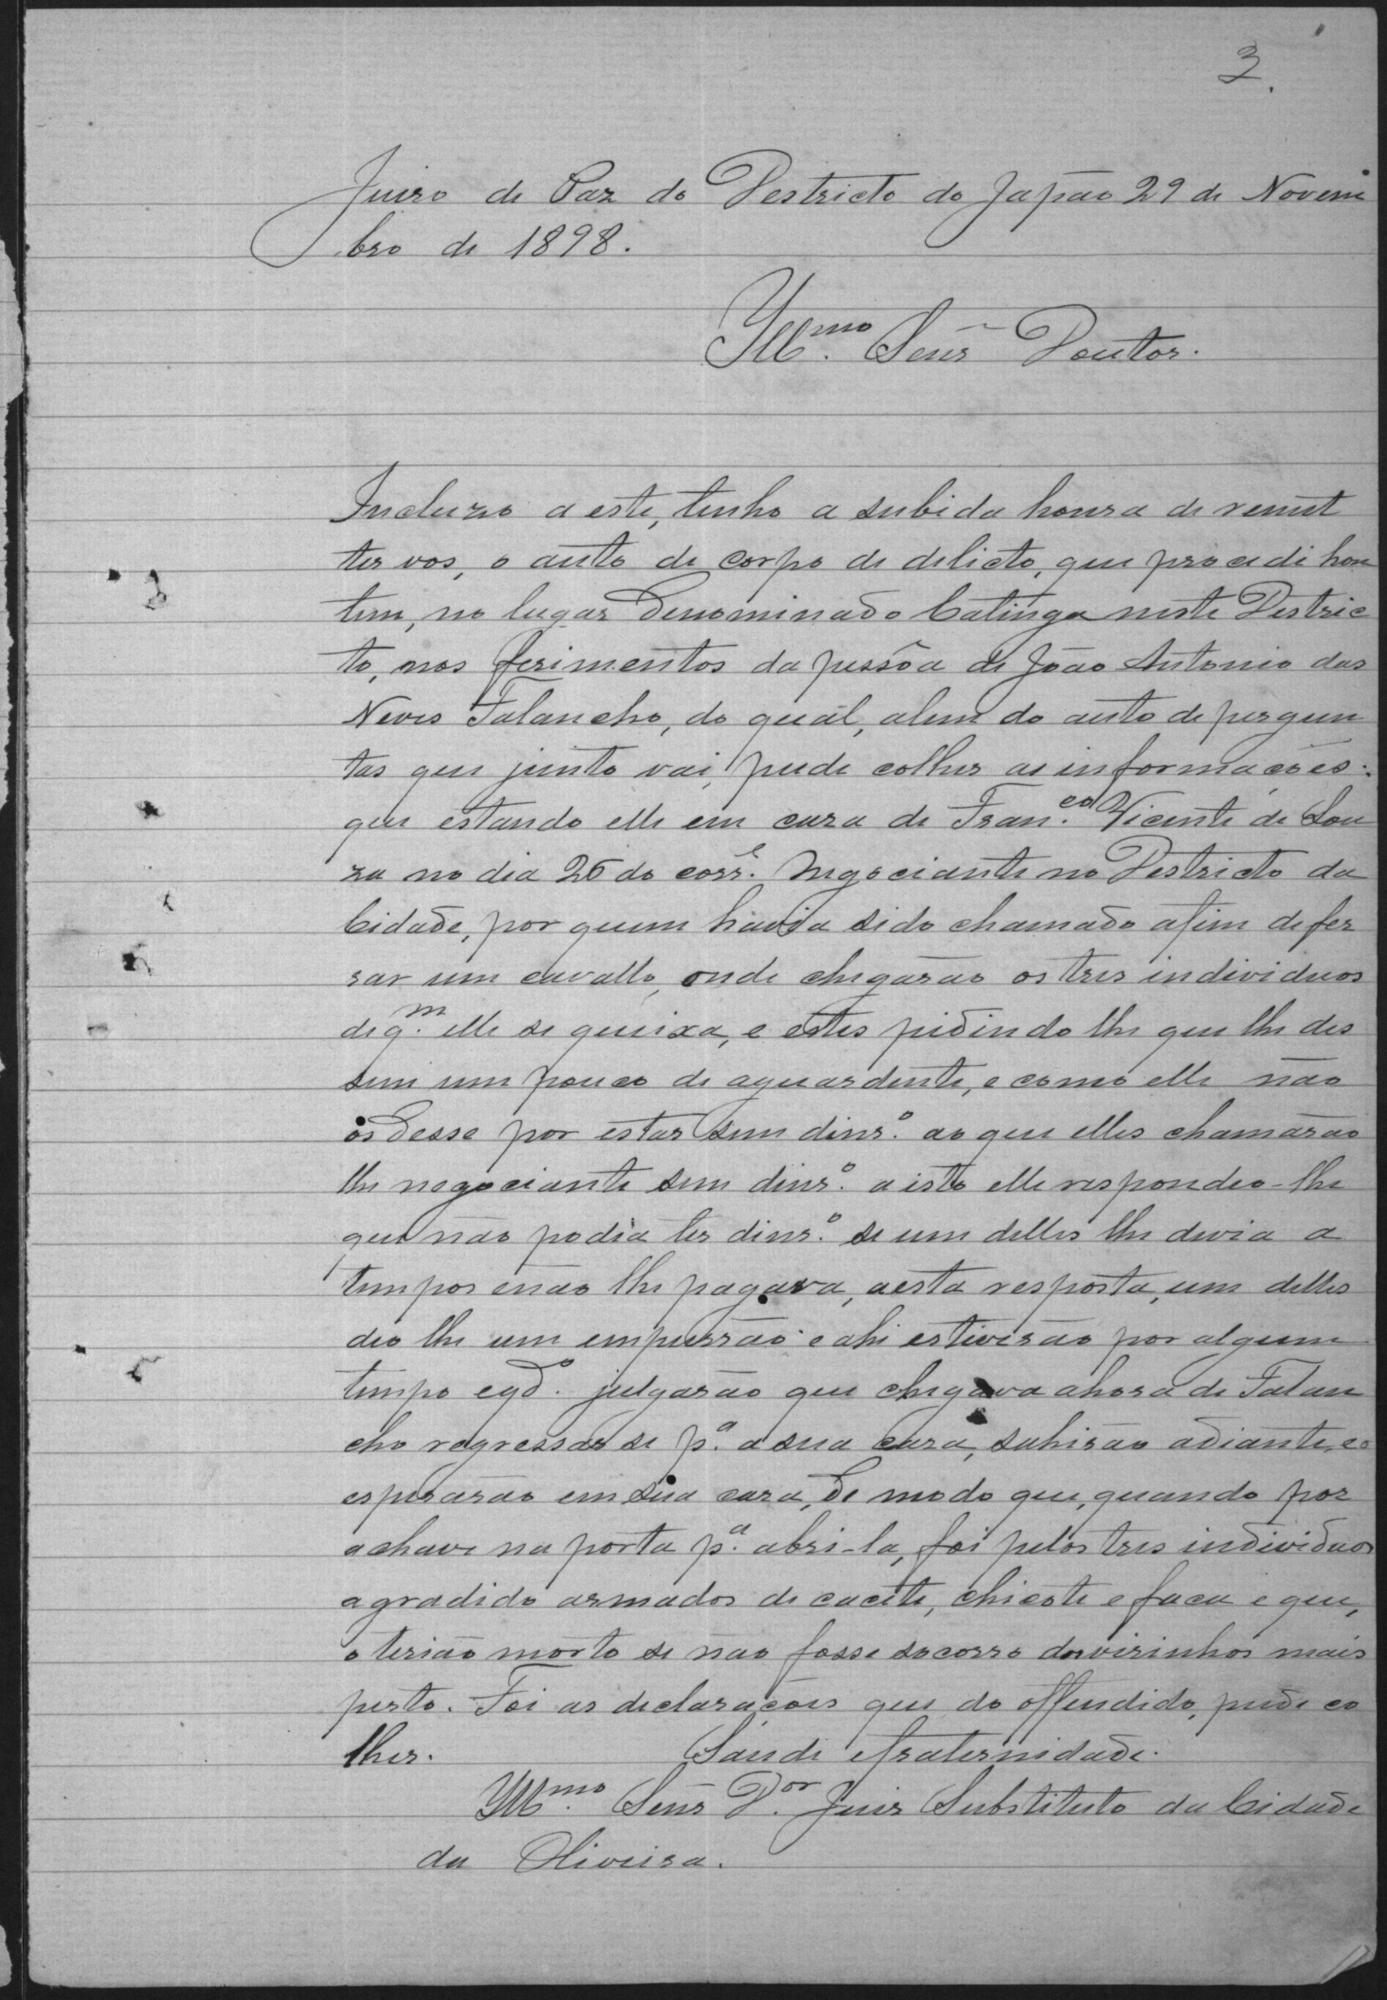 3.
Juizo de Paz do Destricto do Japão 29 de Novem
bro de 1898.
Illmo. Senr Doutor.
Incluzo a este, tenho a subida honra de remet
ter vos, o auto de corpo de delicto, que procedi hon
tem, no lugar denominado Catinga neste Destric
to, nos ferimentos da pessôa de João Antonio das
Neves Falancho, do qual, alem do auto de pergun
tas que junto vai, pude colher as informações:
que estando elle em caza de Franco. Vicente de Sou
za no dia 26 do corre. negociante no Destricto da
Cidade, por quem havia sido chamado afim de fer
rar um cavallo, onde chegarão os tres individuos
de qm. elle se queixa, e estes pidindo lhe que lhe des
sem um pouco de aguardente, e como elle não
os desse por estar sem dinro. ao que elles chamarão
lhe negociante sem dinro. a isto elle respondeo-lhe
que não podia ter dinro. se um delles lhe devia a
tempos e não lhe pagava, a esta resposta, um delles
deo lhe um empurrão e ahi estiverão por algum
tempo e qdo. julgarão que chegava a hora de Falan
cho regressar se pa. a sua caza, sahirão adiante, e o
esperarão em sua caza, de modo que, quando por
a chave na porta pa. abri-la, foi pelos tres individuos
agradido armados de cacete, chicote e faca e que,
o terião morto se não fosse socorro dos vizinhos mais
perto. Foi as declarações que do offendido, pude co
lher. Saude e fraternidade.
Illmo. Senr Dor. Juiz Substituto da Cidade
da Oliveira.